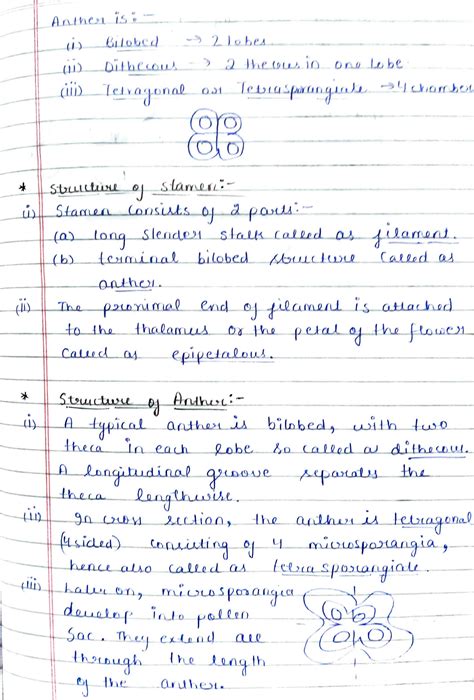 Anther is:-
(i) Bilobed → 2 lobes
(ii) Dithecous → 2 thecous in one lobe
(iii) Tetragonal or Tetrasporangiate → 4 chamber
* Structure of stamen:-
(i) Stamen consists of 2 parts:-
(a) long slender stalk called as filament.
(b) terminal bilobed structure called as
anther.
(ii) The proximal end of filament is attached
to the thalamus or the petal of the flower
called as epipetalous.
* Structure of Anther:-
(i) A typical anther is bilobed, with two
theca in each lobe so called as dithecous.
A longitudinal groove separates the
theca lengthwise.
(ii) In cross section, the anther is tetragonal
(4 sided) consisting of 4 microsporangia,
hence also called as tetrasporangiate.
(iii) Later on, microsporangia
develop into pollen
sac. They extend all
through the length
of the anther.